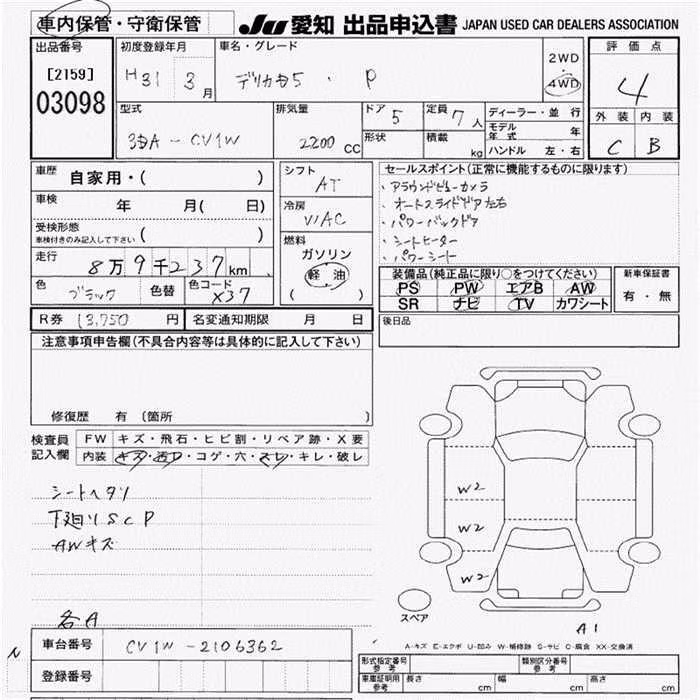 車内保管・守衛保管 JU 愛知 出品申込書 JAPAN USED CAR DEALERS ASSOCIATION
出品番号 初度登録年月 車名・グレード 評価点
[2159] H31 3月 デリカD5 ・ P 2WD 4WD 4
03098
型式 排気量 ドア 5 定員 7人 ディーラー・並行 外装 内装
3DA-CV1W 2200 CC 形状 積載 kg モデル年式 年 C B
ハンドル 左・右
車歴 自家用・( ) シフト AT セールスポイント(正常に機能するものに限ります)
車検 年 月( 日) 冷房 WAC ・アラウンドビューカメラ
受検形態 ・オートスライドドア左右
車検付きのみ記入して下さい ( ) 燃料 ・パワーバックドア
走行 8万9千237km ガソリン ・シートヒーター
軽油 ・パワーシート
色 ブラック 色替 色コード X37 ( )
装備品(純正品に限り○をつけてください) 新車保証書
PS PW エアB AW 有・無
SR ナビ TV カワシート
R券 13,750円 名変通知期限 月 日 後日品
注意事項申告欄(不具合内容等は具体的に記入して下さい)
修復歴 有 〔箇所 〕
検査員 FW キズ・飛石・ヒビ割・リペア跡・X要
記入欄 内装 キズ・汚レ・コゲ・穴・スレ・キレ・破レ
シートヘタリ W2
下廻りSCP W2
AWキズ W2
スペア
各A A1
A-キズ E-エクボ U-凹み W-補修跡 S-サビ C-腐食 XX-交換済
車台番号 CV1W-2106362
登録番号
型式指定番号 参考 類別区分番号 参考
車庫証明用 参考 長さ cm 幅 cm 高さ cm